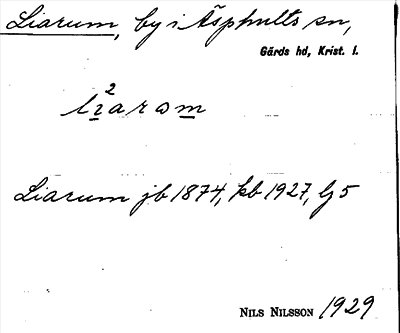 Liarum, by i Äsphults sn,
Gärds hd, Krist. l.
Liarum jb 1874, kb 1927, lj 5
NILS NILSSON 1929